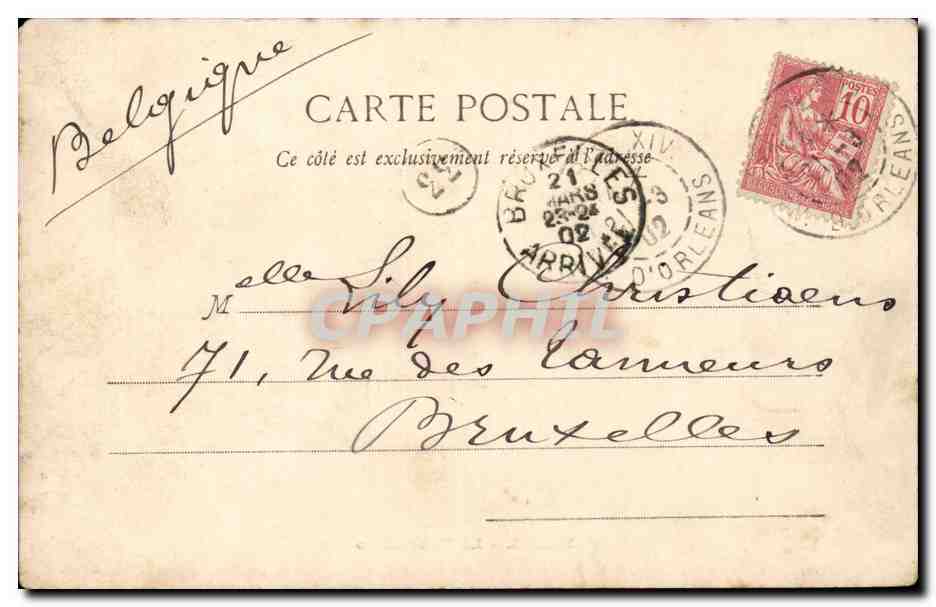 Belgique
CARTE POSTALE
Ce côté est exclusivement réservé à l'adresse
POSTES
10
XIV
3
02
D'ORLEANS
ORLEANS
BRUXELLES
21
MARS
23-24
02
ARRIVEE
53
CPAPHIL
Melle Lily Christiaens
71, rue des Tanneurs
Bruxelles